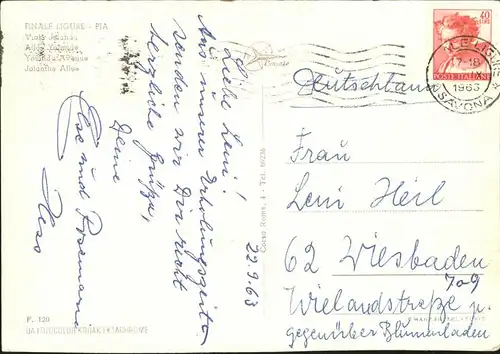 FINALE LIGURE - PIA
Viale Jolanda
Allée Yolande
Yolanda Avenue
Jolantha Allee
22.9.63
Liebe Leni!
Aus unserer Erholungszeit
senden wir Dir recht
herzliche Grüße,
Deine
Else und Rosemarie
Hess
F. 120
Corso Roma, 4 - Tel. 60236
40
POSTE ITALIANE
17-18
1963
(SAVONA)
Deutschland
Frau
Leni Heil
62 Wiesbaden
Wielandstraße
gegenüber Blumenladen